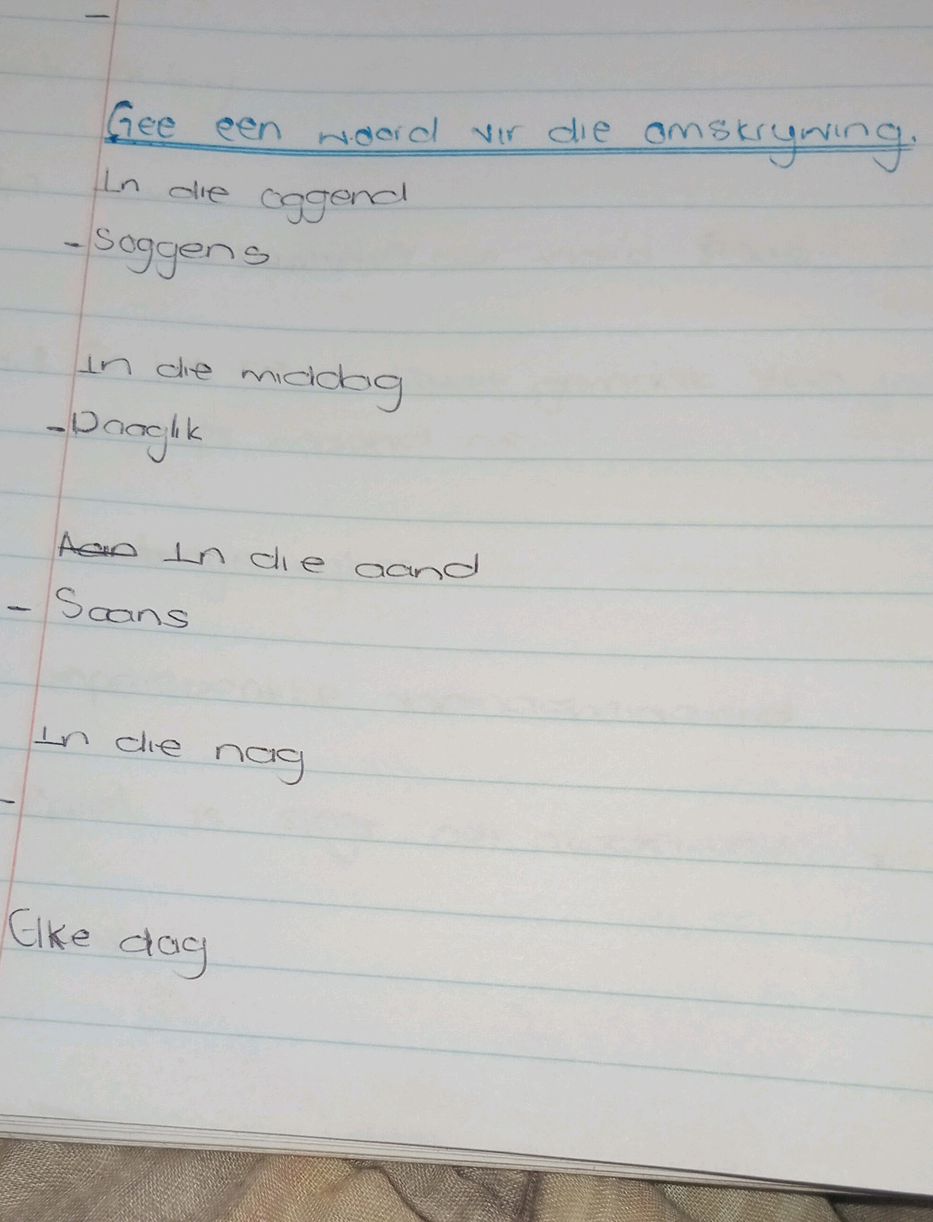 -
Gee een woord vir die omskrywing.
In die oggend
- Soggens
In die middag
- Daaglik
Aan In die aand
- Saans
In die nag
-
Elke dag